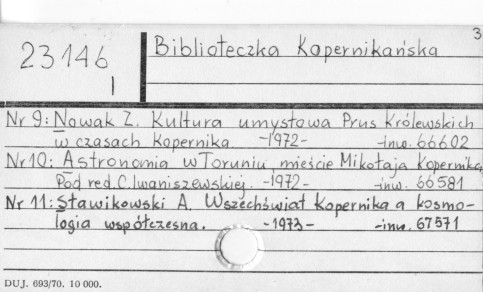 3
23146
I
Biblioteczka Kopernikańska
Nr 9: Nowak Z. Kultura umysłowa Prus Królewskich
w czasach Kopernika. -1972- -inw. 66602
Nr 10: Astronomia w Toruniu, mieście Mikołaja Kopernika,
Pod red. C. Iwaniszewskiej. -1972- -inw. 66581
Nr 11: Sławikowski A. Wszechświat Kopernika a kosmo-
logia współczesna. -1973- -inw. 67571
DUJ. 693/70. 10 000.